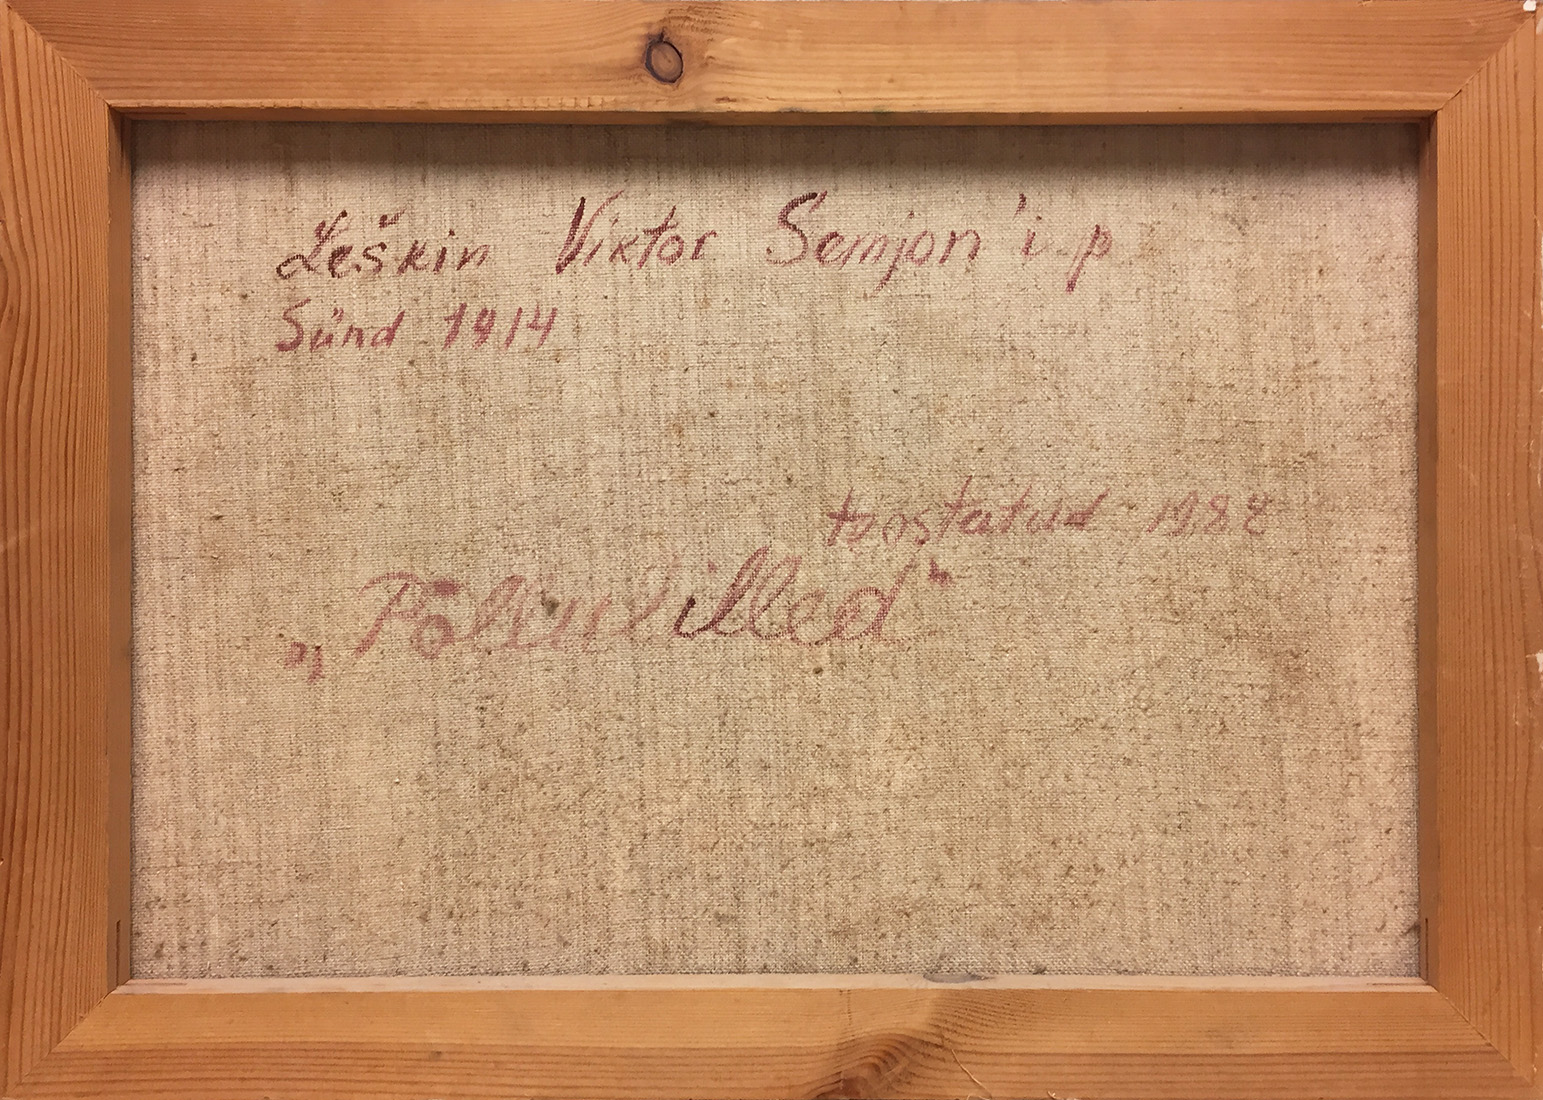 Leškin Viktor Semjon'i.p
Sünd 1914
teostatud 1982
„Põlluvilled“